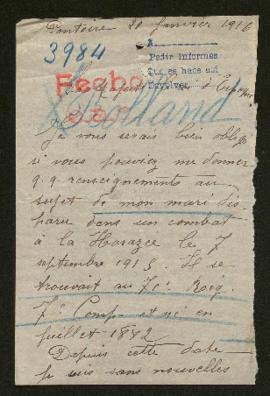 Pontoise 20 Janvier 1916
3984
A
Pedir informes
Que se hace
Devolver.
Fecho
Holland
Je vous serais bien obligé
si vous pouviez me donner
q q renseignements au
sujet de mon mari dis
paru dans un combat
à la Harazée le 7
septembre 1915 Il se
trouvait au 7e
7e Comp et né en
juillet 1882
Depuis cette date
je suis sans nouvelles